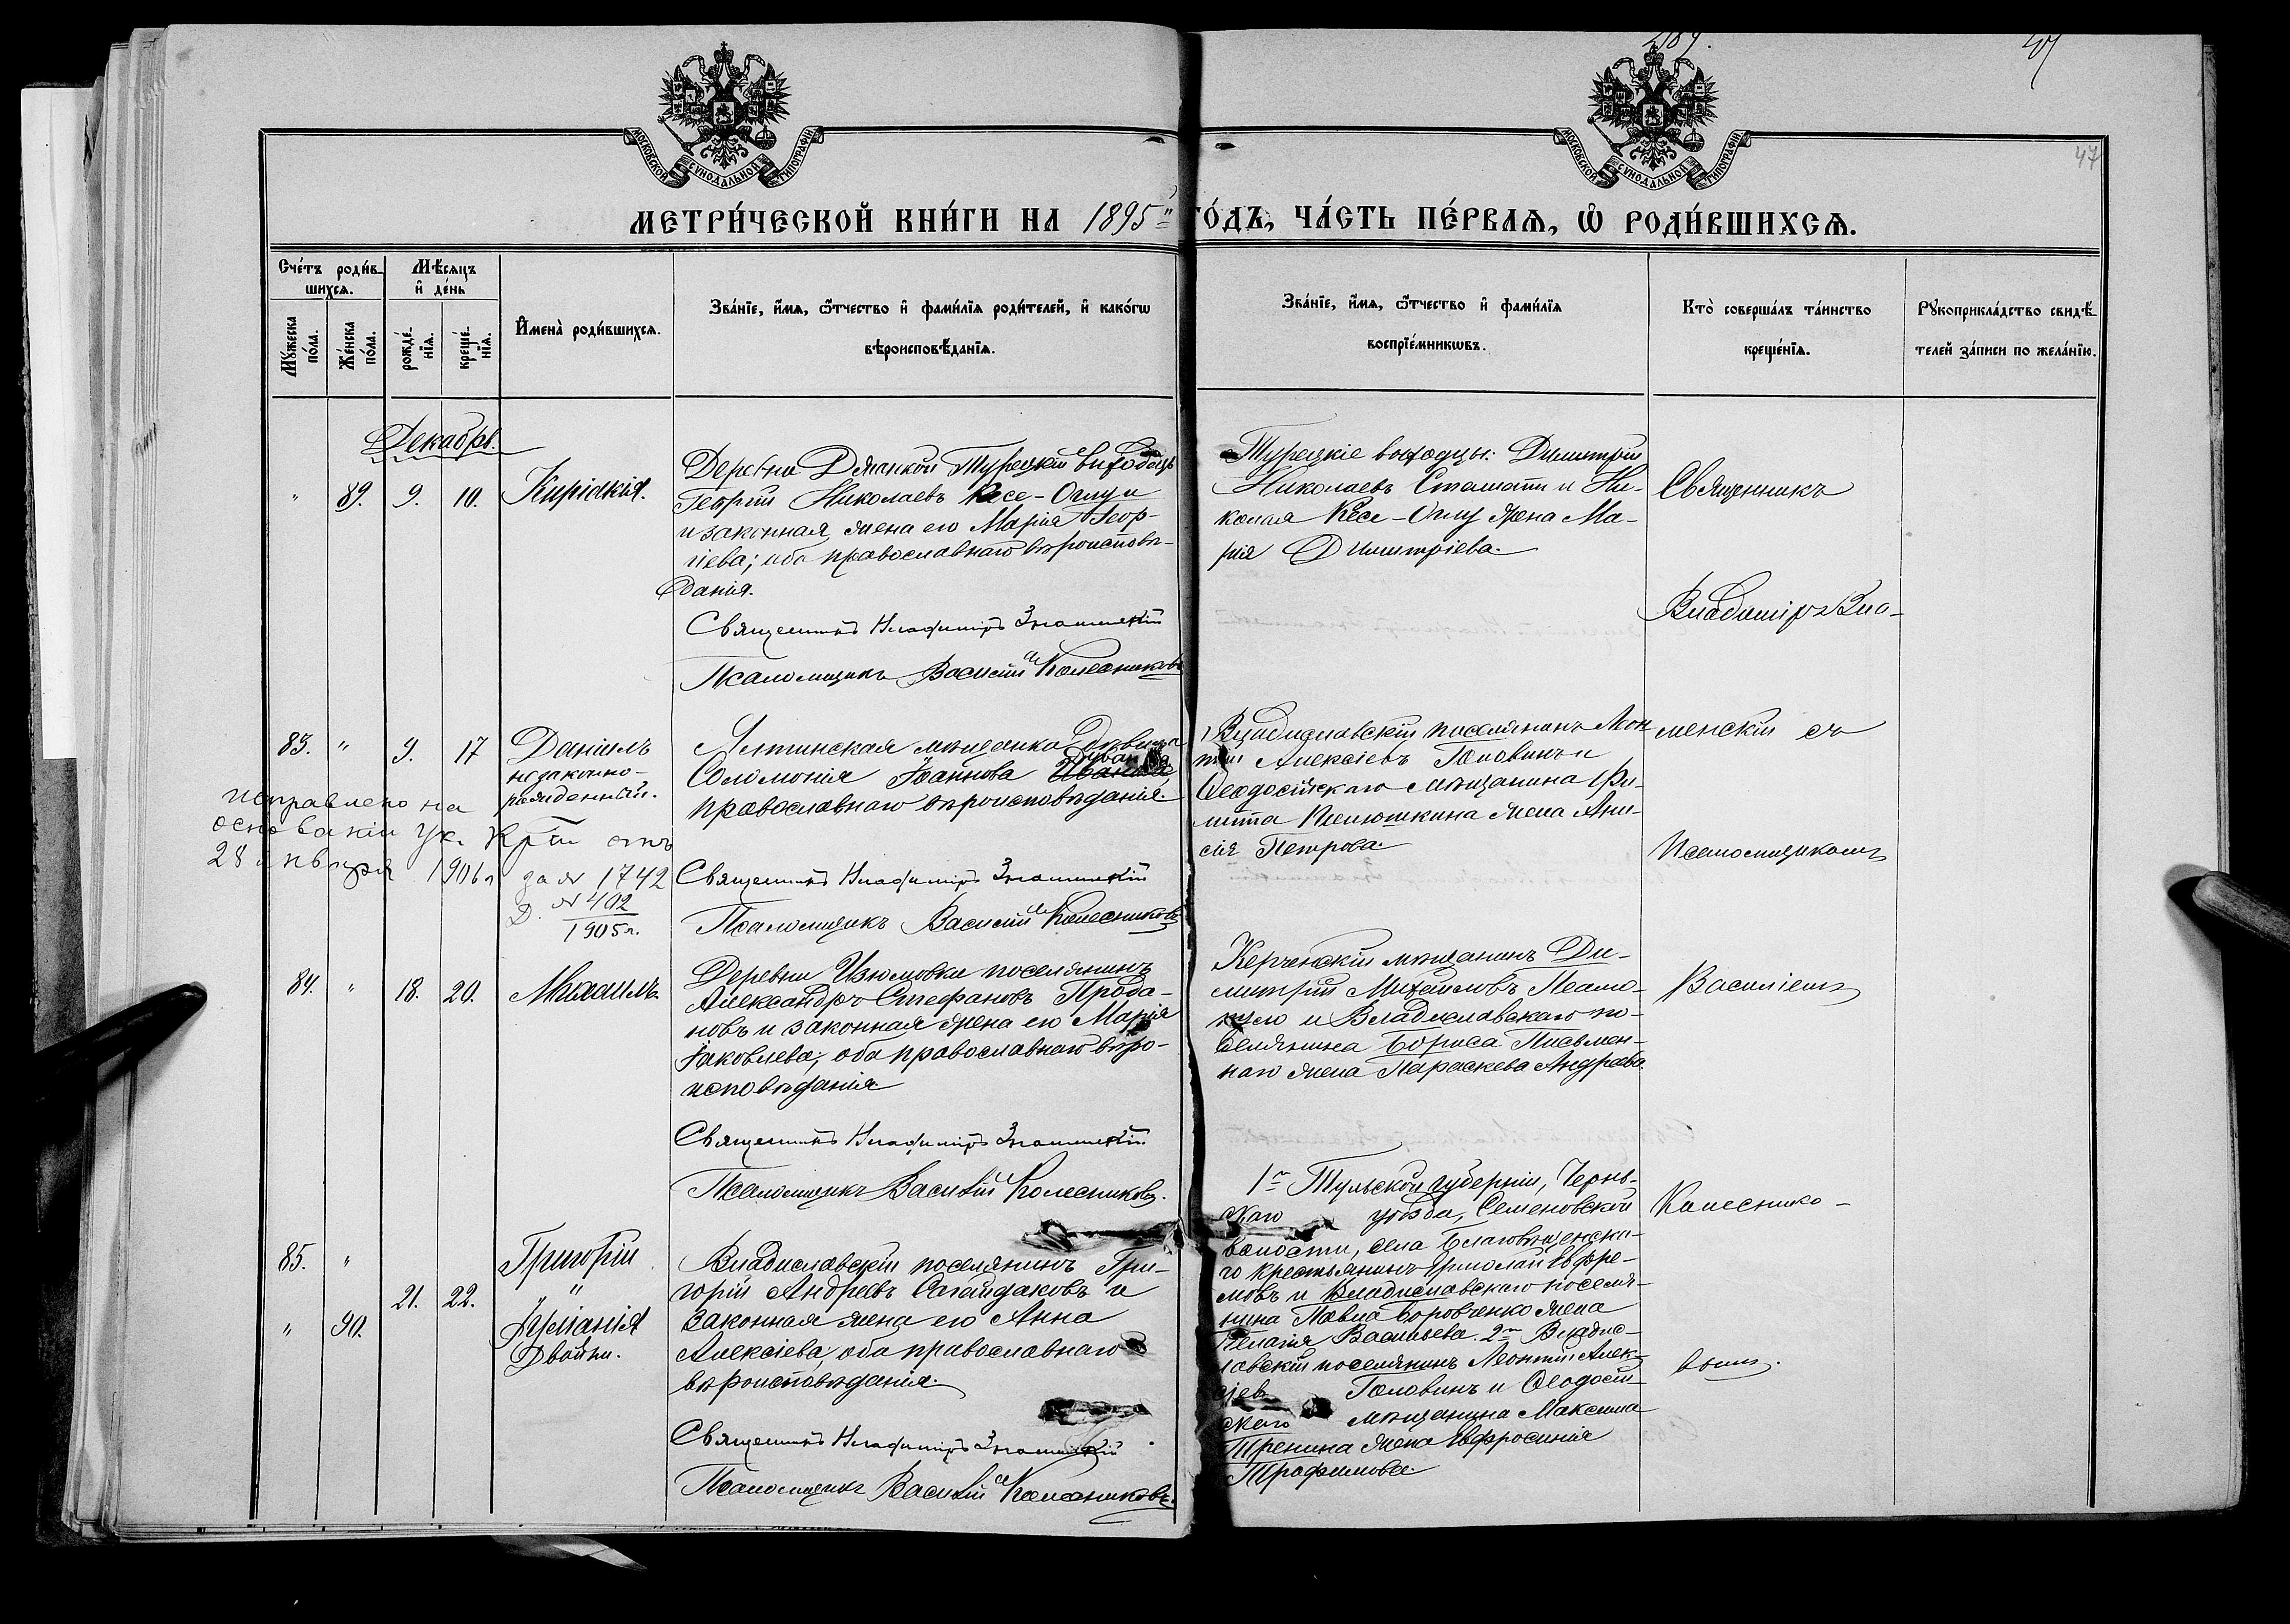 47
МОСКОВСКОЙ СУНОДАЛЬНОЙ ТИПОГРАФІИ
МОСКОВСКОЙ СУНОДАЛЬНОЙ ТИПОГРАФІИ
47
МЕТРИ́ЧЕСКОЙ КНИ́ГИ НА 1895й
ГО́ДЪ, ЧА́СТЬ ПЕ́РВАѦ, Ѡ РОДИ́ВШИХСѦ.
Сче́тъ роди́в-
шихсѧ.
Мѣ́сѧцъ
и҆ де́нь
Му́жеска
по́ла.
Же́нска
по́ла.
рожде́-
нїѧ.
креще́-
нїѧ.
И҆мена̀ роди́вшихсѧ.
Зва́нїе, и҆́мѧ, ѻ҆́тчество и҆ фами́лїѧ роди́телей, и҆ како́гѡ
вѣроисповѣ́данїѧ.
Зва́нїе, и҆́мѧ, ѻ҆́тчество и҆ фами́лїѧ
воспрїе́мникѡвъ.
Кто̀ соверша́лъ та́инство
креще́нїѧ.
Рꙋкоприкла́дство свидѣ́-
телей за́писи по жела́нїю.
Декабрь.
" 89. 9. 10. Киріакія.
Деревни Турецкій выходецъ
Георгій Николаевъ Кесе-Оглу и
и законная жена его Марія Геор-
гіева; оба православнаго вѣроисповѣ-
данія.
Священникъ Владиміръ Знаменскій
Псаломщикъ Василій Колесниковъ
Турецкіе выходцы: Димитрій
Николаевъ Стамати и Ни-
колая Кесе-Оглу жена Ма-
рія Димитріева.
Священникъ
Владиміръ Зна-
83. " 9. 17 Даніилъ
незаконно-
рожденный.
Ялтинская мѣщанка Давида
Соломонія Іоаннова
православнаго вѣроисповѣданія.
исправлено на
основаніи ук. отъ
28 января 1906 г за № 1742
Д. № 402
1905 г.
Священникъ Владиміръ Знаменскій
Псаломщикъ Василій Колесниковъ
Владиславскій поселянинъ Леон-
тій Алексіевъ Головинъ и
Ѳеодосійскаго мѣщанина Фи-
липпа жена Ани-
сія Петрова.
менскій съ
Псаломщикомъ
84. " 18. 20. Михаилъ.
Деревни Изюмовки поселянинъ
Александръ Стефановъ Прода-
новъ и законная жена его Марія
Іаковлева, оба православнаго вѣро-
исповѣданія
Священникъ Владиміръ Знаменскій
Псаломщикъ Василій Колесниковъ.
Керченскій мѣщанинъ Ди-
митрій Михаиловъ
и Владиславскаго по-
селянина Бориса Письмен-
наго жена Параскева Андреева.
Василіемъ
85. " Григорій
21. 22. "
" 90.
Двойни.
Владиславскій поселянинъ Гри-
горій Андреевъ Сагайдаковъ и
законная жена его Анна
Алексіева, оба православнаго
вѣроисповѣданія.
Священникъ Владиміръ Знаменскій
Псаломщикъ Василій Колесниковъ.
1го Тульской губерніи, Чернь-
скаго уѣзда, Семеновской
волости, села Благовѣщенска-
го крестьянинъ Ермолай Евфре-
мовъ и Владиславскаго поселя-
нина Павла Боровченко жена
Пелагія Васильева. 2го Владис-
лавскій поселянинъ Леонтій Алек-
сіевъ Головинъ и Ѳеодосій-
скаго мѣщанина Максима
Тренина жена Евфросинія
Трофимова.
Колеснико-
вымъ.